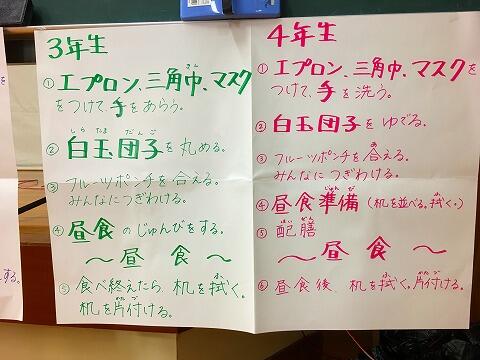 3年生
①エプロン、三角巾、マスク
をつけて、手をあらう。
②白玉団子を丸める。
③フルーツポンチを合える。
みんなにつぎわける。
④昼食のじゅんびをする。
～昼食～
⑤食べ終えたら、机を拭く。
机を片付ける。
4年生
①エプロン、三角巾、マスクを
つけて、手を洗う。
②白玉団子をゆでる。
③フルーツポンチを合える。
みんなにつぎわける。
④昼食準備(机を並べる。拭く。)
⑤配膳
～昼食～
⑥昼食後、机を拭く。片付ける。